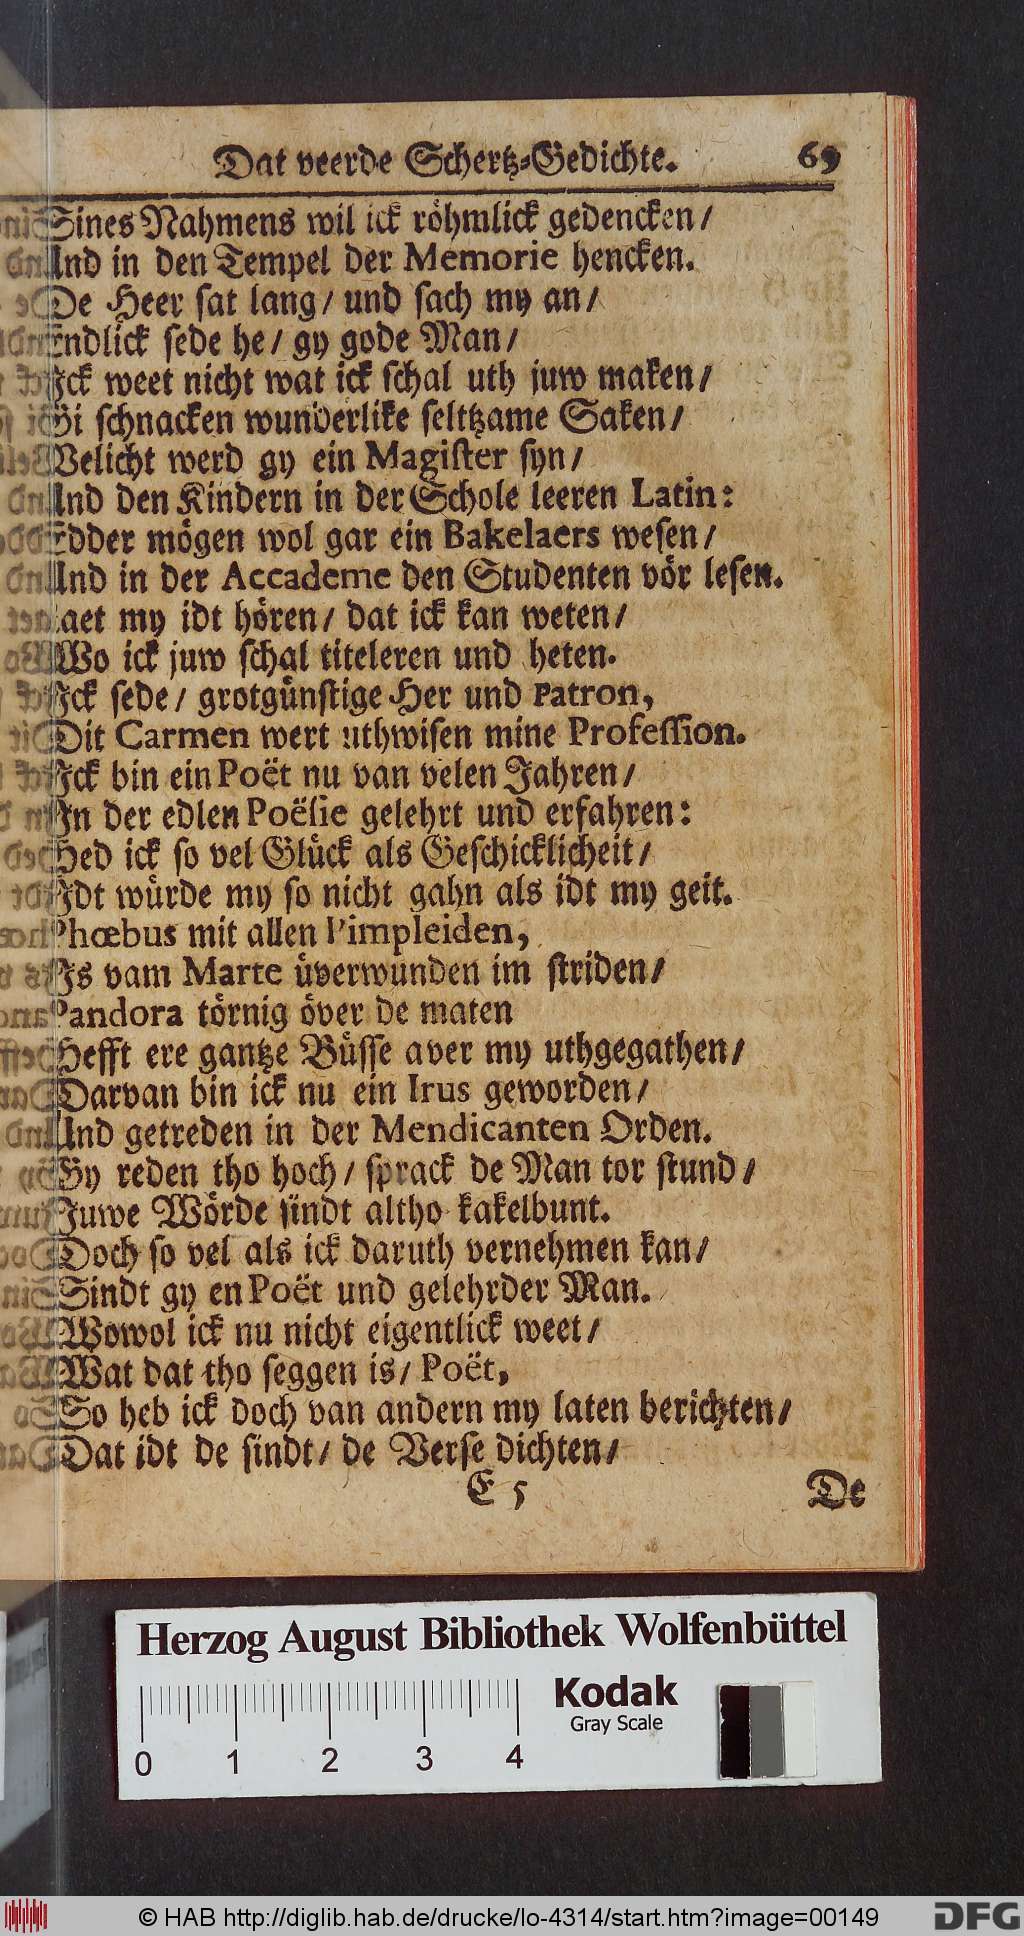 Dat veerde Schertz-Gedichte. 69
Sines Nahmens wil ick röhmlick gedencken/
Und in den Tempel der Memorie hencken.
De Heer sat lang/ und sach my an/
Endlick sede he/ gy gode Man/
Ick weet nicht wat ick schal uth juw maken/
Gi schnacken wunderlike seltzame Saken/
Velicht werd gy ein Magister syn/
Und den Kindern in der Schole leeren Latin:
Edder mögen wol gar ein Bakelaers wesen/
Und in der Accademe den Studenten vör lesen.
Laet my idt hören/ dat ick kan weten/
Wo ick juw schal titeleren und heten.
Ick sede/ grotgünstige Her und Patron,
Dit Carmen wert uthwisen mine Profession.
Ick bin ein Poët nu van velen Jahren/
In der edlen Poësie gelehrt und erfahren:
Hed ick so vel Glück als Geschicklicheit/
Idt würde my so nicht gahn als idt my geit.
Phœbus mit allen Pimpleiden,
Is vam Marte överwunden im striden/
Pandora törnig över de maten
Hefft ere gantze Büsse aver my uthgegathen/
Darvan bin ick nu ein Irus geworden/
Und getreden in der Mendicanten Orden.
Gy reden tho hoch/ sprack de Man tor stund/
Juwe Wörde sindt altho kakelbunt.
Doch so vel als ick daruth vernehmen kan/
Sindt gy en Poët und gelehrder Man.
Wowol ick nu nicht eigentlick weet/
Wat dat tho seggen is/ Poët,
So heb ick doch van andern my laten berichten/
Dat idt de sindt/ de Verse dichten/
E 5 De
Herzog August Bibliothek Wolfenbüttel
Kodak
Gray Scale
0 1 2 3 4
© HAB http://diglib.hab.de/drucke/lo-4314/start.htm?image=00149
DFG